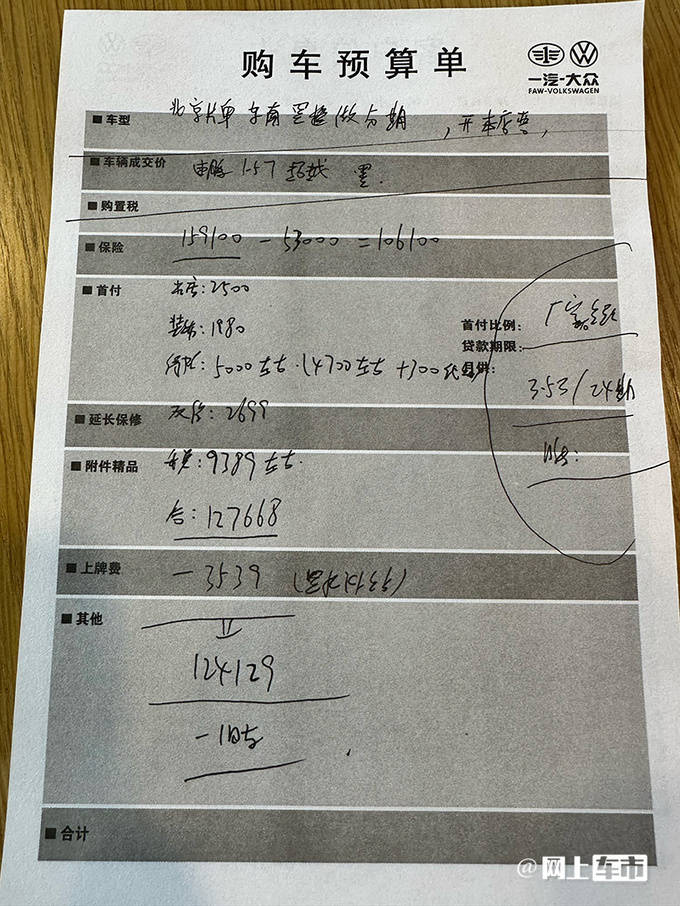 购车预算单
一汽-大众
FAW-VOLKSWAGEN
■ 车型 北京 置换做分期，开本店票，
■ 车辆成交价 速腾 1.5T 超越 墨
■ 购置税
■ 保险 159100 - 53000 = 106100
■ 首付 2500
装潢：1980
保险：5000左右.(4700左右+300
首付比例： 厂家金融
贷款期限：
月供： 3.53/24期
■ 延长保修 延保：2699
■ 附件精品 9389左右.
合：127668
■ 上牌费 -3539
■ 其他
124129
-1
■ 合计
@网上车市